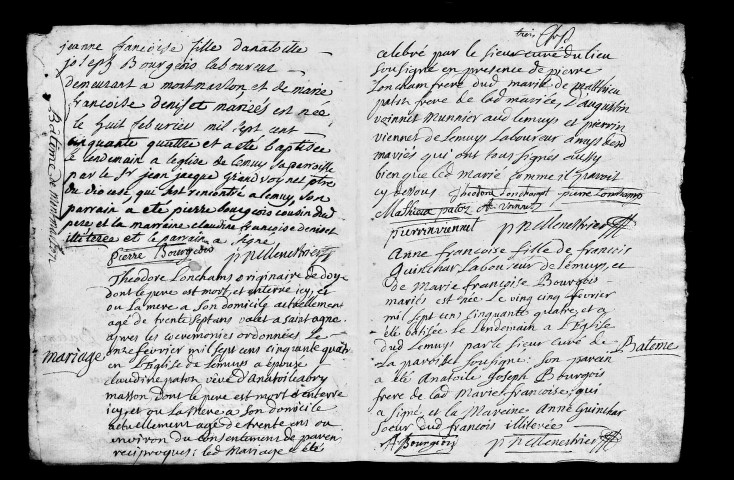 jeanne françoise fille danatoille
joseph Bourgeois laboureur
demeurant a montmarlon et de marie
françoise denisset mariés est née
le huit feburier mil sept cent
cinquante quattre et a eté baptisée
le lendemain a leglise de lemuy sa parroisse
par le Sr jean jacque grand voynet ptre
du diocese qui sest rencontré a lemuy son
parrain a eté pierre bourgeois cousin dud
pere et la marraine claudine françoise denisset
illiterée et le parrain a signé
Pierre Bourgeois p n Menestrier
Bateme de montmarlon
Theodore Lonchams originaire de doye
dont le pere est mort, et enterré icy, et
ou la mere a son domicile actuellement
agé de trente sept ans valet a saint agne
apres les ceremonies ordonnées Le
onze fevrier mil sept cens cinquante quatre
mariage
en l'Eglise de Lemuys a épousé
claudine patoz veuve d'Anatoile abry
masson dont le pere est mort et enterré
icy, et ou La Mere a Son domicile
actuellement agée de trente ans ou
environ du consentement de paren
reciproques; led Mariage a été
trois
celebré par le sieur curé du lieu
soussigné en presence de pierre
Loncham frere dud marié de matthieu
patoz frere de Lad mariée, d'augustin
voinnet Munnier aud Lemuy et pierrin
viennet de Lemuys Laboureur amys desd
mariés qui ont tous signés aussy
bien que led marié comme il paroit
cy dessous Theodore Lonchampt pierre Lonchamp
Mathieu patoz A. vannet
pierrin viennet p n Menestrier
Anne françoise fille de françois
Guinchar Laboureur de Lemuys, et
de Marie françoise Bourgois
mariés est née Le vingt cinq fevrier
mil sept cens cinquante quatre, et a
été batisée Le lendemain a l'Eglise
dud Lemuys par le sieur curé de
Bateme
La paroisse soussigné: son parein
a été Anatoile Joseph Bourgois
frere de Lad Marie françoise; qui
a signé, et la Mareine Anne Guinchar
soeur dud françois illiterée
A Bourgeois p n Menestrier